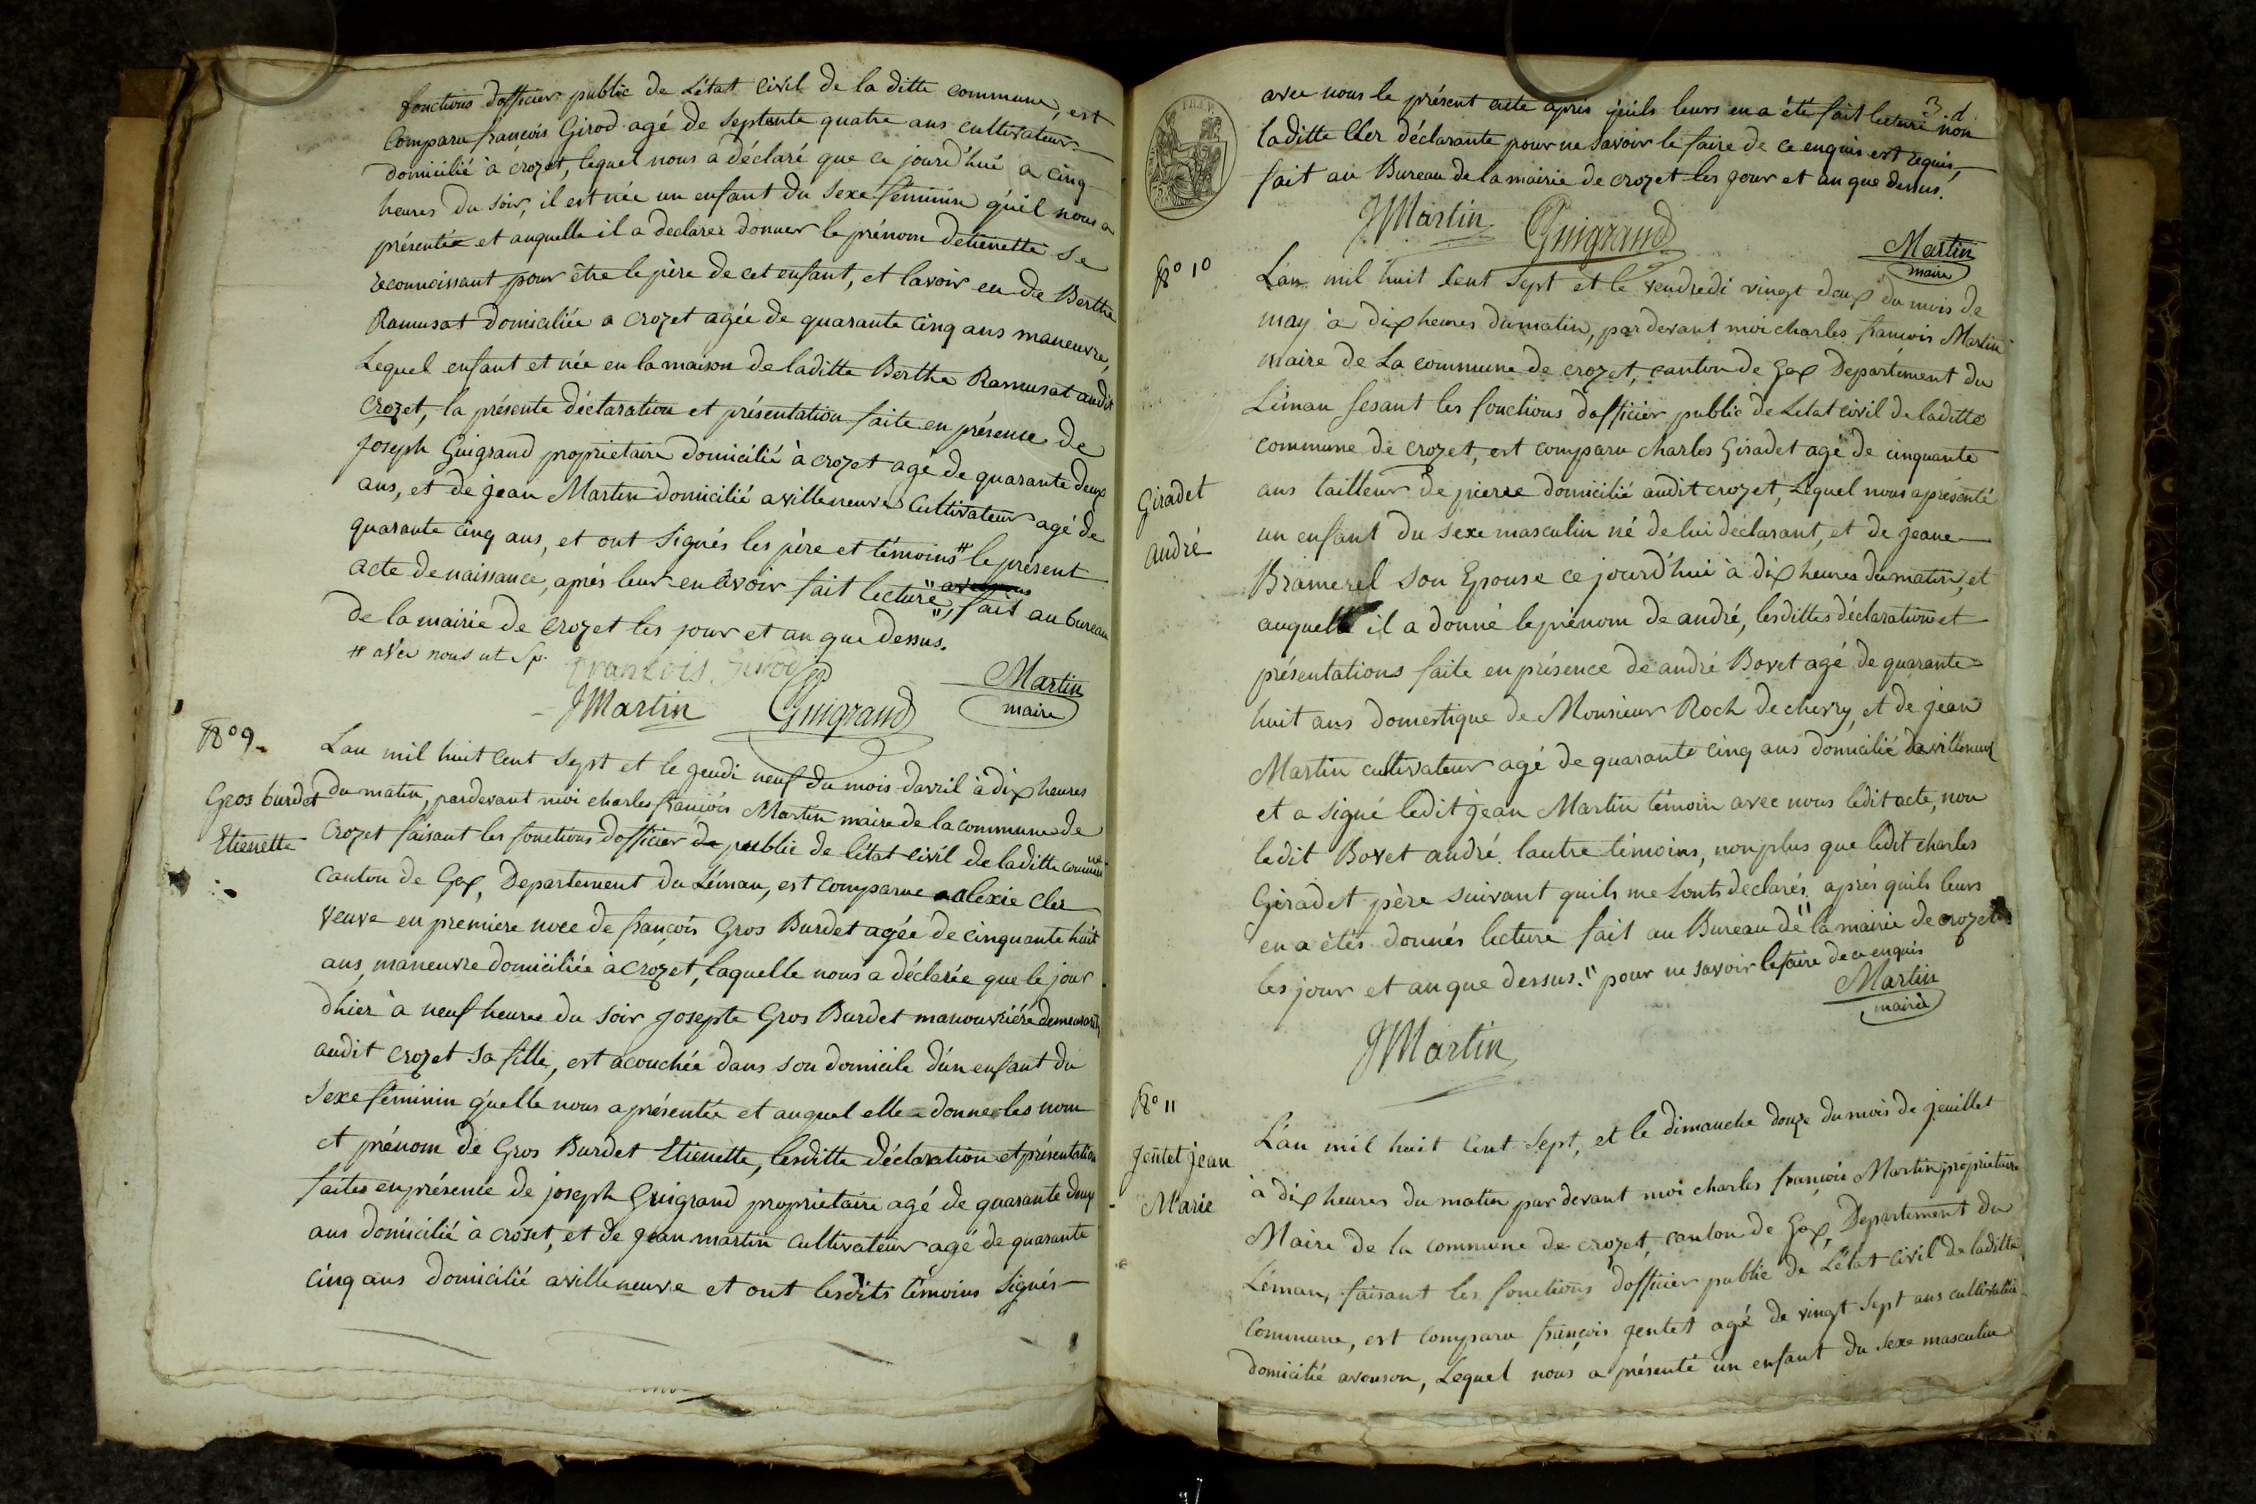 fonctions d'officier public de L'état civil de la ditte commune, est
Comparu françois Girod agé de septente quatre ans cultivateur
domicilié à crozet, lequel nous a déclaré que ce jourd'hui a cinq
heures du soir, il est née un enfant du sexe féminin qu'il nous a
présentée et auquelle il a declarer donner le prénom detienette se
reconnoissant pour être le père de cet enfant, et lavoir eu de Berthe
Ramusat domiciliée a crozet agée de quarante cinq ans maneuvre,
Lequel enfant et née en la maison de laditte Berthe Ramusat audit
Crozet, la présente déclaration et présentation faite en présence de
joseph Guigrand propriétaire domicilié à crozet agé de quarante deux
ans, et de jean Martin domicilié a villeneuve Cultivateur agé de
quarante cinq ans, et ont Signés les père et témoins # le présent
acte de naissance, aprés leur en avoir fait lecture, " fait au bureau
de la mairie de crozet les jour et an que dessus.
# avec nous ut Sp.
francois Girod
Martin
maire
JMartin Guigrand
N° 9.
Gros burdet
Etienette
Lan mil huit cent sept et le jeudi neuf du mois davril à dix heures
du matin, pardevant moi charles françois Martin maire de la commune de
Crozet faisant les fonctions dofficier de public de létat civil de laditte commune
canton de Gex, Departement du Léman, est comparue alexie Cler
veuve en premiere noce de françois Gros Burdet agée de cinquante huit
ans, maneuvre domiciliée à Crozet, laquelle nous a déclarée que le jour
dhier à neuf heures du soir josepte Gros Burdet manouvriére demeurant
audit crozet sa fille, est acouchée dans son domicile d'un enfant du
sexe féminin quelle nous a présentée et auquel elle a donner les nom
et prénom de Gros Burdet Etienette, lesditte déclaration et présentation
faites en présence de joseph Guigrand propriétaire agé de quarante deux
ans domicilié à crozet, et de jean martin cultivateur agé de quarante
Cinq ans domicilié a villeneuve et ont lesdits témoins Signés
3. d
avec nous le présent acte aprés quils leurs en a été fait lecture non
laditte Cler déclarante pour ne savoir le faire de ce enquis est requis,
fait au Bureau de la mairie de crozet les jour et an que dessus.
JMartin Guigrand
Martin
maire
N° 10
Giradet
andré
Lan mil huit Cent Sept et le vendredi vingt deux du mois de
may à dix heures du matin, par devant moi charles françois Martin
maire de La commune de crozet, canton de Gex Departement du
Léman fesant les fonctions dofficier public de Letat civil de laditte
commune de crozet, est comparu charles Giradet agé de cinquante
ans tailleur de pierre domicilié audit crozet, Lequel nous a présenté
un enfant du sexe masculin né de lui déclarant, et de jeane
Bramerel son Epouse ce jourd'hui à dix heures du matin, et
auquelle il a donné le prénom de andré, lesdittes déclaration et
présentations faite en présence de andré Bovet agé de quarante
huit ans domestique de Monsieur Roch de chevry, et de jean
Martin cultivateur agé de quarante cinq ans domicilié de villeneuve
et a signé ledit jean Martin témoin avec nous ledit acte, non
ledit Bovet andré. lautre témoins, non plus que ledit charles
Giradet père suivant quils me Sonts declarés, aprés quils leurs
en a étés donnés lecture fait au Bureau de " la mairie de crozet
les jour et an que dessus. " pour ne savoir le faire de ce enquis
Martin
maire
JMartin
N° 11
Jentet jean
Marie
L'an mil huit Cent Sept, et le dimanche douze du mois de jeuillet
à dix heures du matin par devant moi charles françois Martin propriétaire
Maire de la commune de crozet, canton de Gex, Departement du
Léman, faisant les fonctions dofficier public de L'état civil de laditte
Commune, est comparu françois gentet agé de vingt sept ans cultivateur
domicilié avouson, Lequel nous a présenté un enfant du sexe masculin